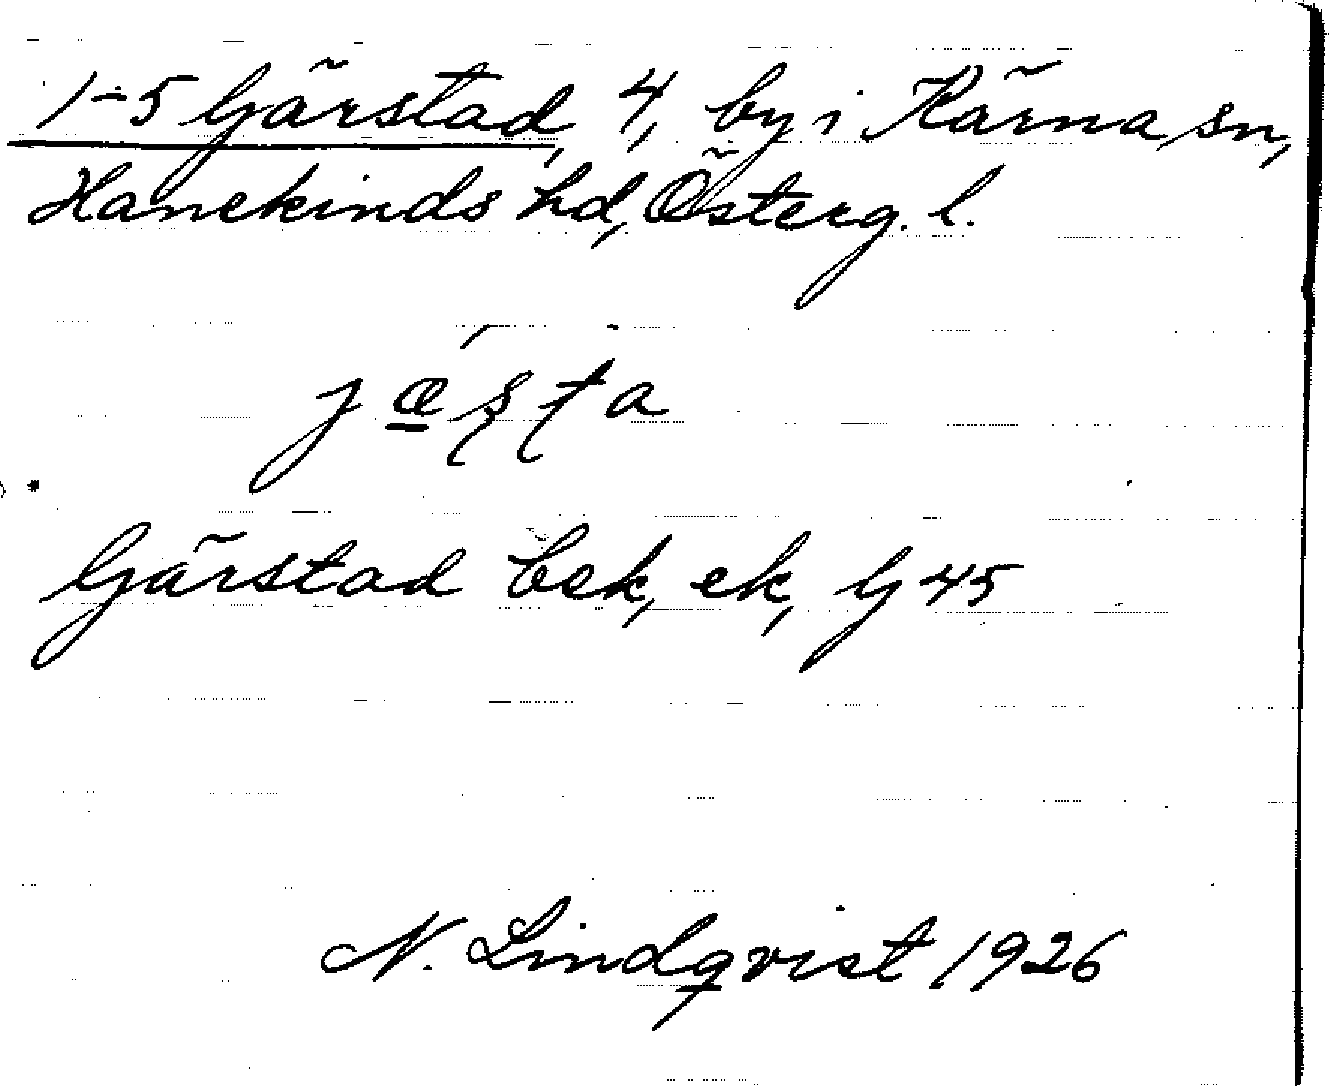 1-5 Gärstad, 4, by i Kärna sn,
Hanekinds hd, Österg. l.
jǽ̲ʂʈa
Gärstad bek, ek, G 45
N. Lindqvist 1926